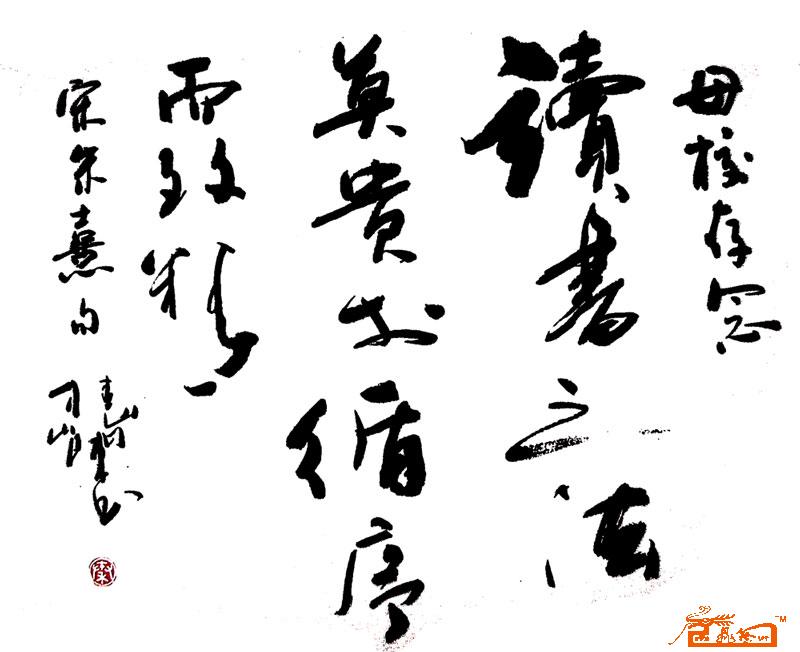 母校存念
讀書之法
莫貴於循序
而致精
宋朱熹句